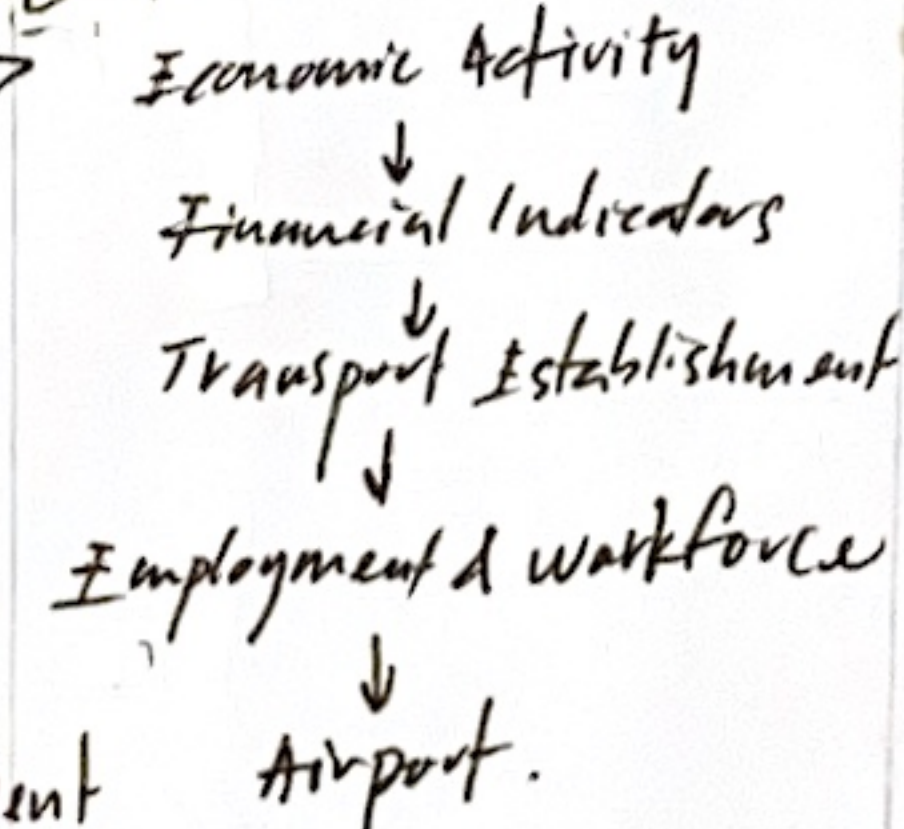 Economic Activity
↓
Financial Indicators
↓
Transport Establishment
↓
Employment & workforce
↓
ent Airport.